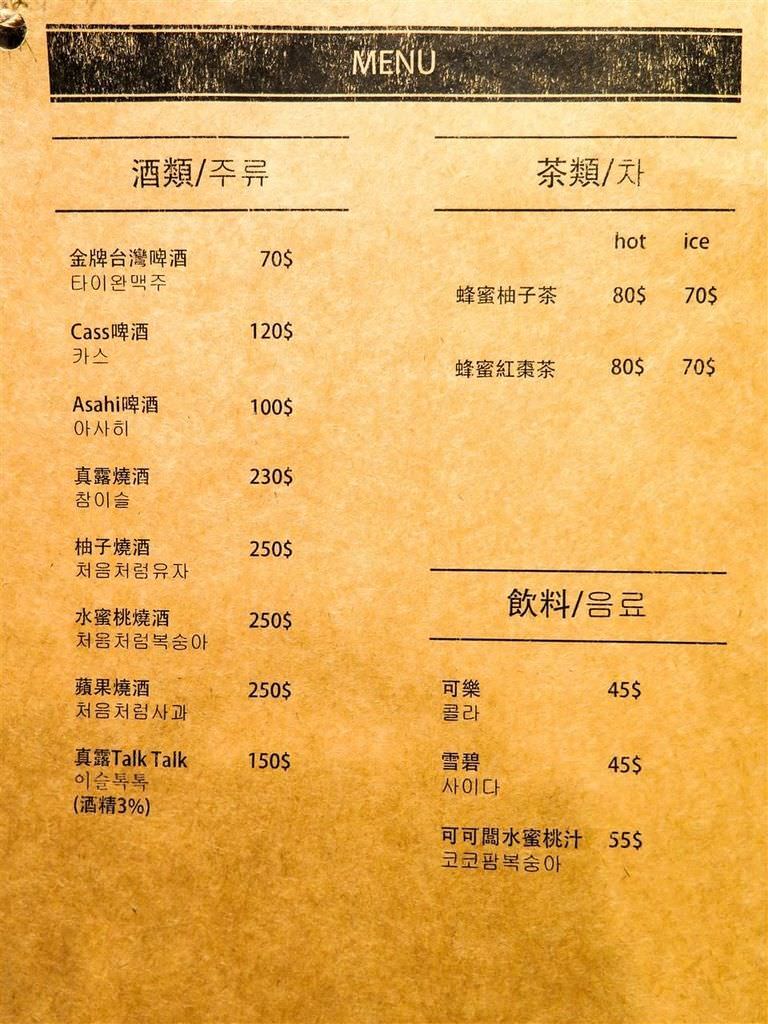 MENU
酒類/주류
金牌台灣啤酒 70$
타이완맥주
Cass啤酒 120$
카스
Asahi啤酒 100$
아사히
真露燒酒 230$
참이슬
柚子燒酒 250$
처음처럼유자
水蜜桃燒酒 250$
처음처럼복숭아
蘋果燒酒 250$
처음처럼사과
真露Talk Talk 150$
이슬톡톡
(酒精3%)
茶類/차
hot ice
蜂蜜柚子茶 80$ 70$
蜂蜜紅棗茶 80$ 70$
飲料/음료
可樂 45$
콜라
雪碧 45$
사이다
可可闆水蜜桃汁 55$
코코팜복숭아